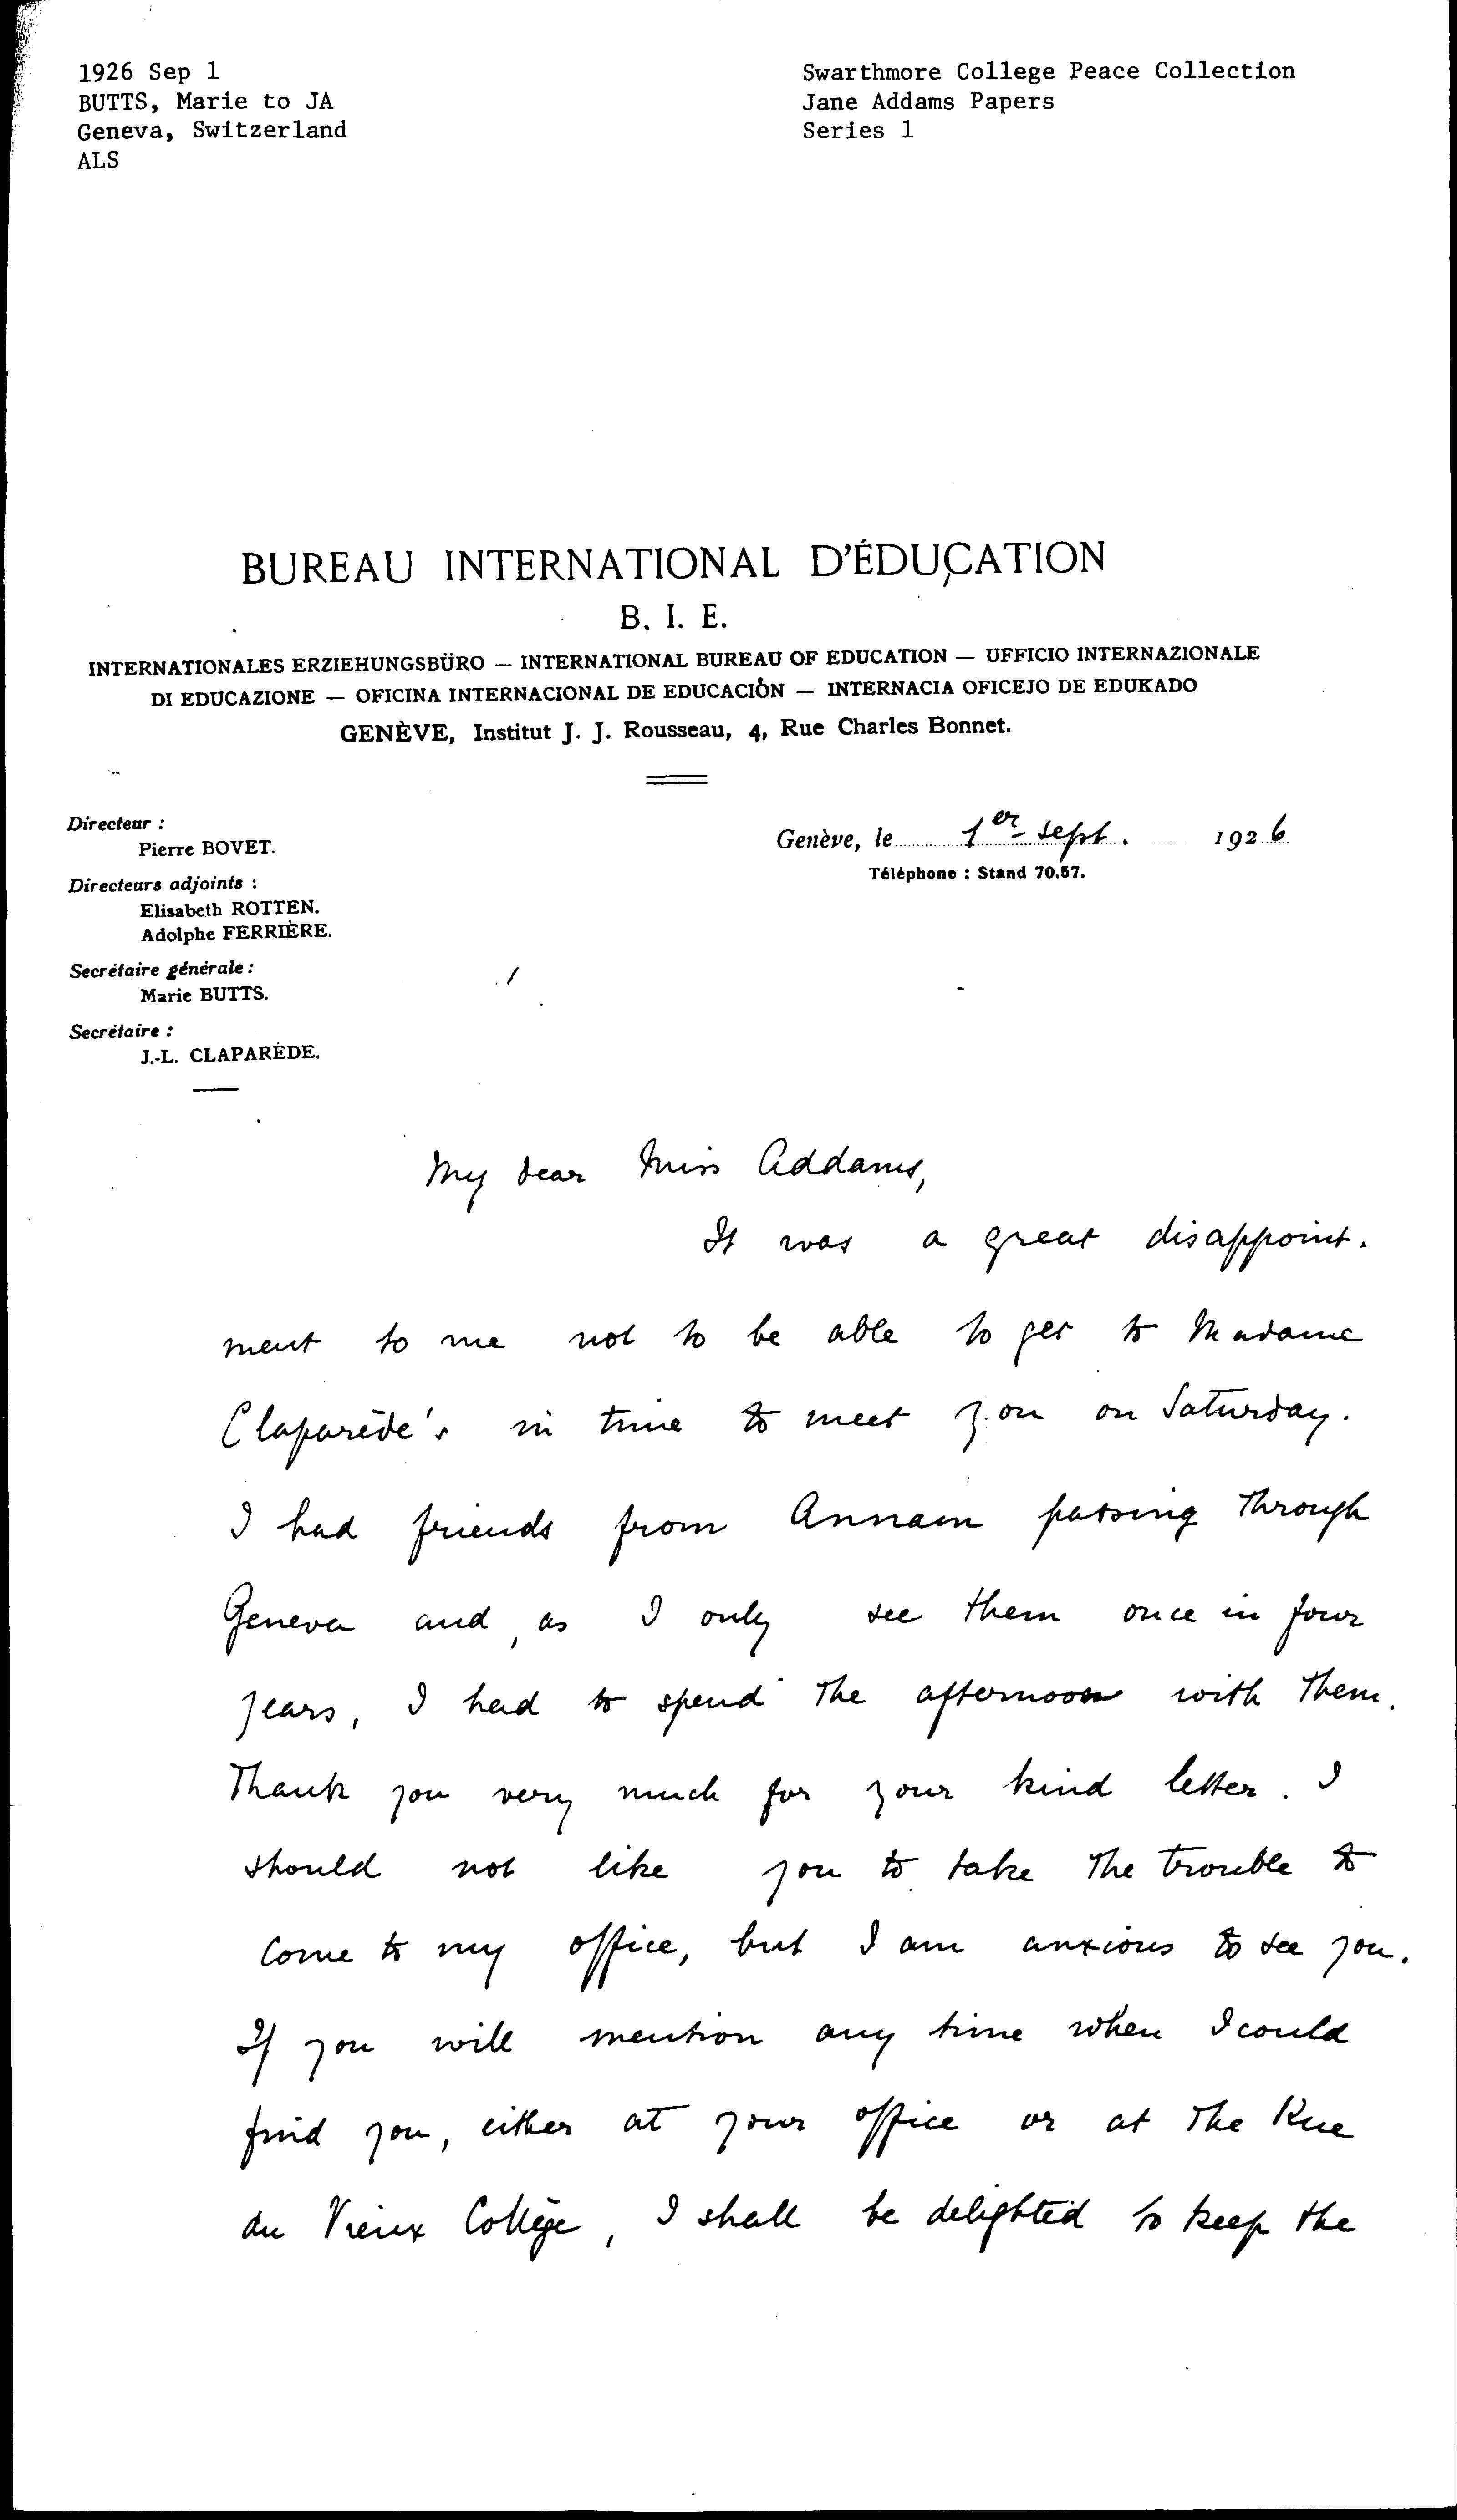 1926 Sep 1
BUTTS, Marie to JA
Geneva, Switzerland
ALS
Swarthmore College Peace Collection
Jane Addams Papers
Series 1
BUREAU INTERNATIONAL D'ÉDUCATION
B. I. E.
INTERNATIONALES ERZIEHUNGSBÜRO — INTERNATIONAL BUREAU OF EDUCATION — UFFICIO INTERNAZIONALE
DI EDUCAZIONE — OFICINA INTERNACIONAL DE EDUCACIÒN — INTERNACIA OFICEJO DE EDUKADO
GENÈVE, Institut J. J. Rousseau, 4, Rue Charles Bonnet.
Directeur :
Pierre BOVET.
Directeurs adjoints :
Elisabeth ROTTEN.
Adolphe FERRIÈRE.
Secrétaire générale :
Marie BUTTS.
Secrétaire :
J.-L. CLAPARÈDE.
Genève, le 1er sept. 1926
Téléphone : Stand 70.57.
My dear Miss Addams,
It was a great disappoint-
ment to me not to be able to get to Madame
Claparède's in time to meet you on Saturday.
I had friends from Annam passing through
Geneva and, as I only see them once in four
years, I had to spend the afternoon with them.
Thank you very much for your kind letter. I
should not like you to take the trouble to
come to my office, but I am anxious to see you.
If you will mention any time when I could
find you, either at your office or at the Rue
du Vieux Collège, I shall be delighted to keep the